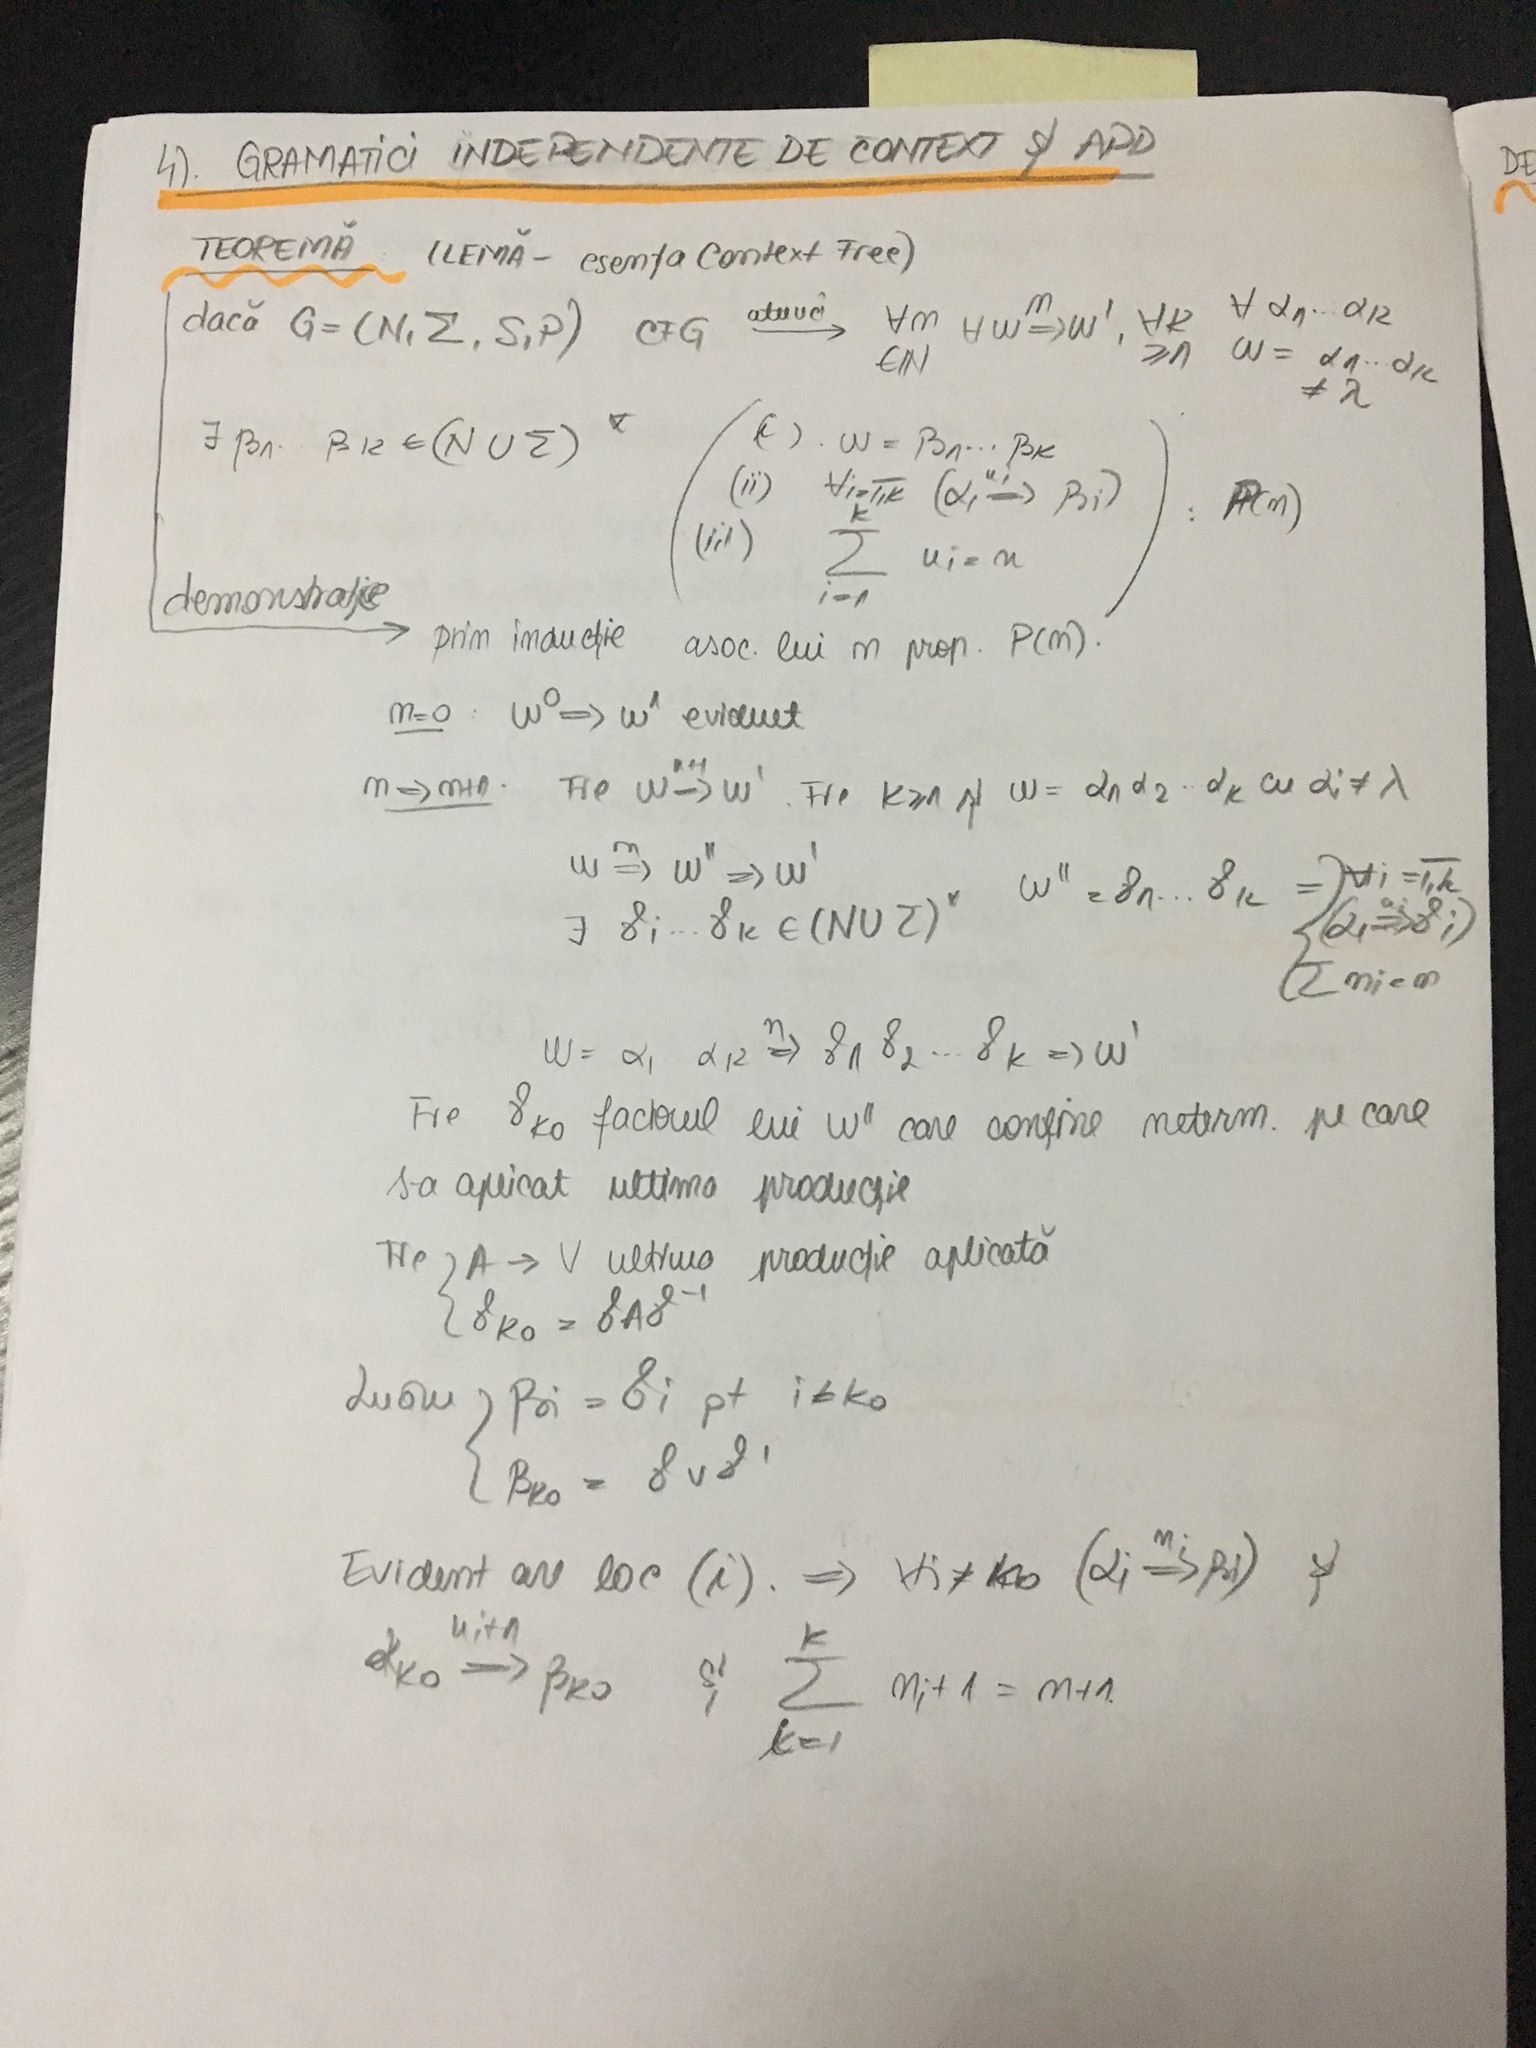 4). GRAMATICI INDEPENDENTE DE CONTEXT și APD
DE
TEOREMĂ (LEMĂ - esența Context Free)
dacă G = (N, Σ, S, P) CFG atunci → ∀n ∈ℕ ∀w ⇒ⁿ w', ∀k ≥1 ∀ α1...αk w = α1...αk ≠ λ
∃ β1... βk ∈ (N ∪ Σ)*
(i). w = β1...βk
(ii) ∀i=1,k (αi ⇒ⁿⁱ βi) : P(n)
(iii) Σ_{i=1}^{k} ni = n
demonstrație
→ prin inducție asoc. lui n prop. P(n).
n=0 : w ⁰⇒ w' evident
n→n+1. Fie w ⇒ⁿ⁺¹ w'. Fie k≥1 și w = α1 α2...αk cu αi ≠ λ
w ⇒ⁿ w'' ⇒ w' w'' = γ1...γk ⇒ { ∀i = 1,k
∃ γi...γk ∈ (N ∪ Σ)* (αi ⇒ⁿⁱ γi)
Σ ni = n
w = α1 αk ⇒ⁿ γ1 γ2 ... γk ⇒ w'
Fie γk0 factorul lui w'' care conține neterm. pe care
s-a aplicat ultima producție
Fie { A → v ultima producție aplicată
γk0 = γAγ-1
Luăm { βi = γi pt i ≠ k0
βk0 = γ v γ'
Evident are loc (i). ⇒ ∀i ≠ k0 (αi ⇒ⁿⁱ βi) și
αk0 ⇒ⁿⁱ⁺¹ βk0 și Σ_{k=1}^{k} ni + 1 = n+1.